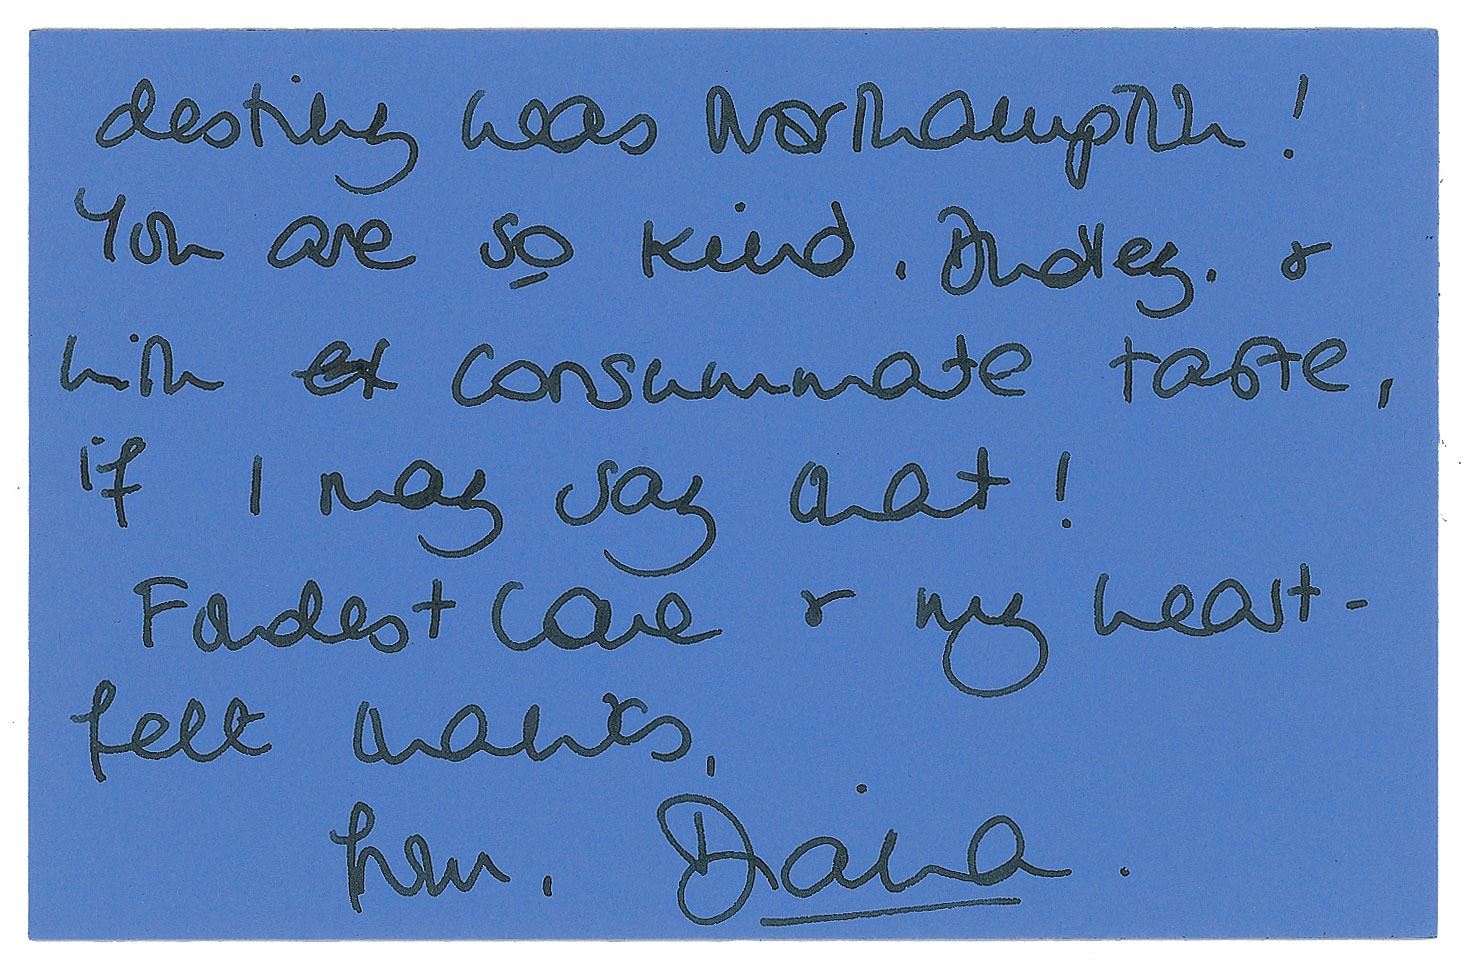 destiny was Northampton!
You are so kind, Dudley. &
with consummate taste,
if I may say that!
Fondest love & my heart-
felt thanks,
from, Diana.